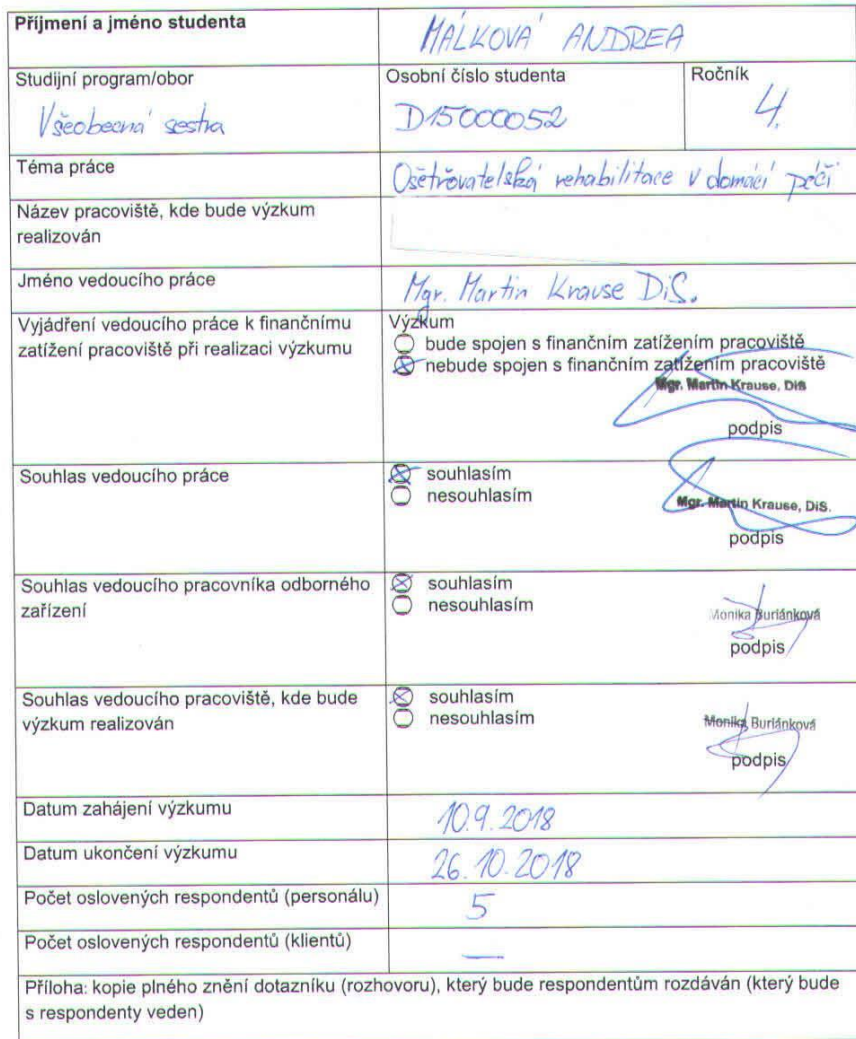 Příjmení a jméno studenta
MÁLKOVÁ ANDREA
Studijní program/obor
Všeobecná sestra
Osobní číslo studenta
D15000052
Ročník
4.
Téma práce
Ošetřovatelská rehabilitace v domácí péči
Název pracoviště, kde bude výzkum
realizován
Jméno vedoucího práce
Mgr. Martin Krause DiS.
Vyjádření vedoucího práce k finančnímu
zatížení pracoviště při realizaci výzkumu
Výzkum
bude spojen s finančním zatížením pracoviště
nebude spojen s finančním zatížením pracoviště
Mgr. Martin Krause, DiS
podpis
Souhlas vedoucího práce
souhlasím
nesouhlasím
Mgr. Martin Krause, DiS.
podpis
Souhlas vedoucího pracovníka odborného
zařízení
souhlasím
nesouhlasím
Monika Buriánková
podpis
Souhlas vedoucího pracoviště, kde bude
výzkum realizován
souhlasím
nesouhlasím
Monika Buriánková
podpis
Datum zahájení výzkumu
10.9.2018
Datum ukončení výzkumu
26.10.2018
Počet oslovených respondentů (personálu)
5
Počet oslovených respondentů (klientů)
—
Příloha: kopie plného znění dotazníku (rozhovoru), který bude respondentům rozdáván (který bude
s respondenty veden)